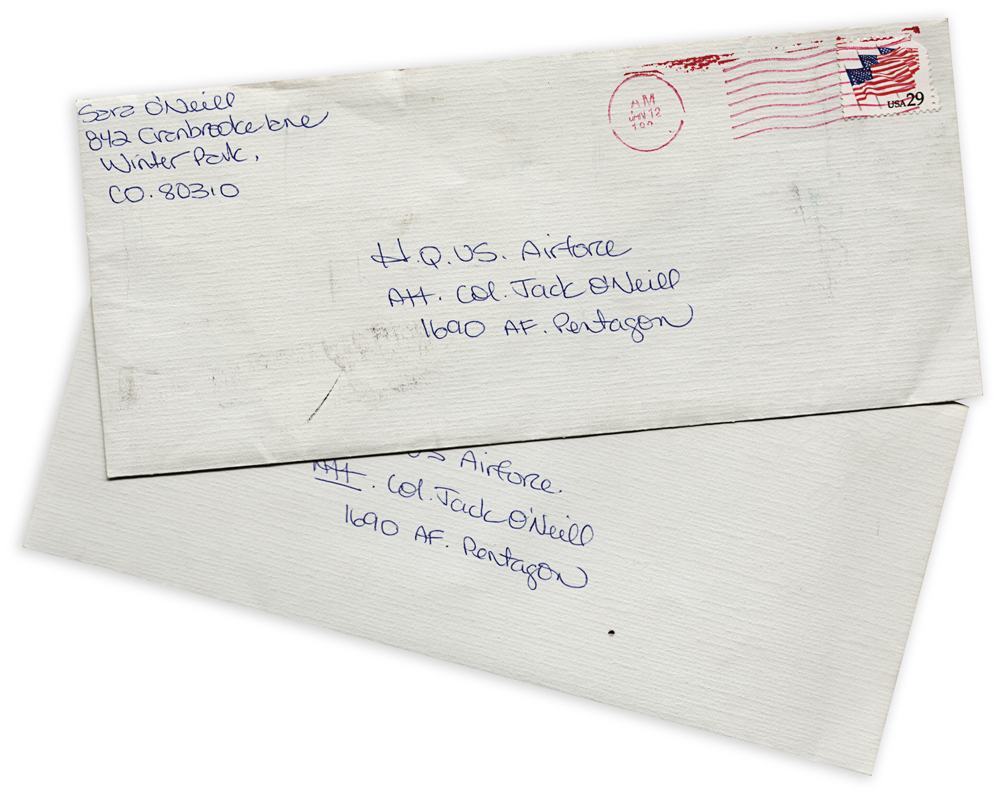 Sara O'Neill
842 Cranbrooke Lane
Winter Park,
CO. 80310
AM
JAN 12
USA 29
H.Q. US. Airforce
Att. Col. Jack O'Neill
1690 AF. Pentagon
US Airforce.
Att. Col. Jack O'Neill
1690 AF. Pentagon